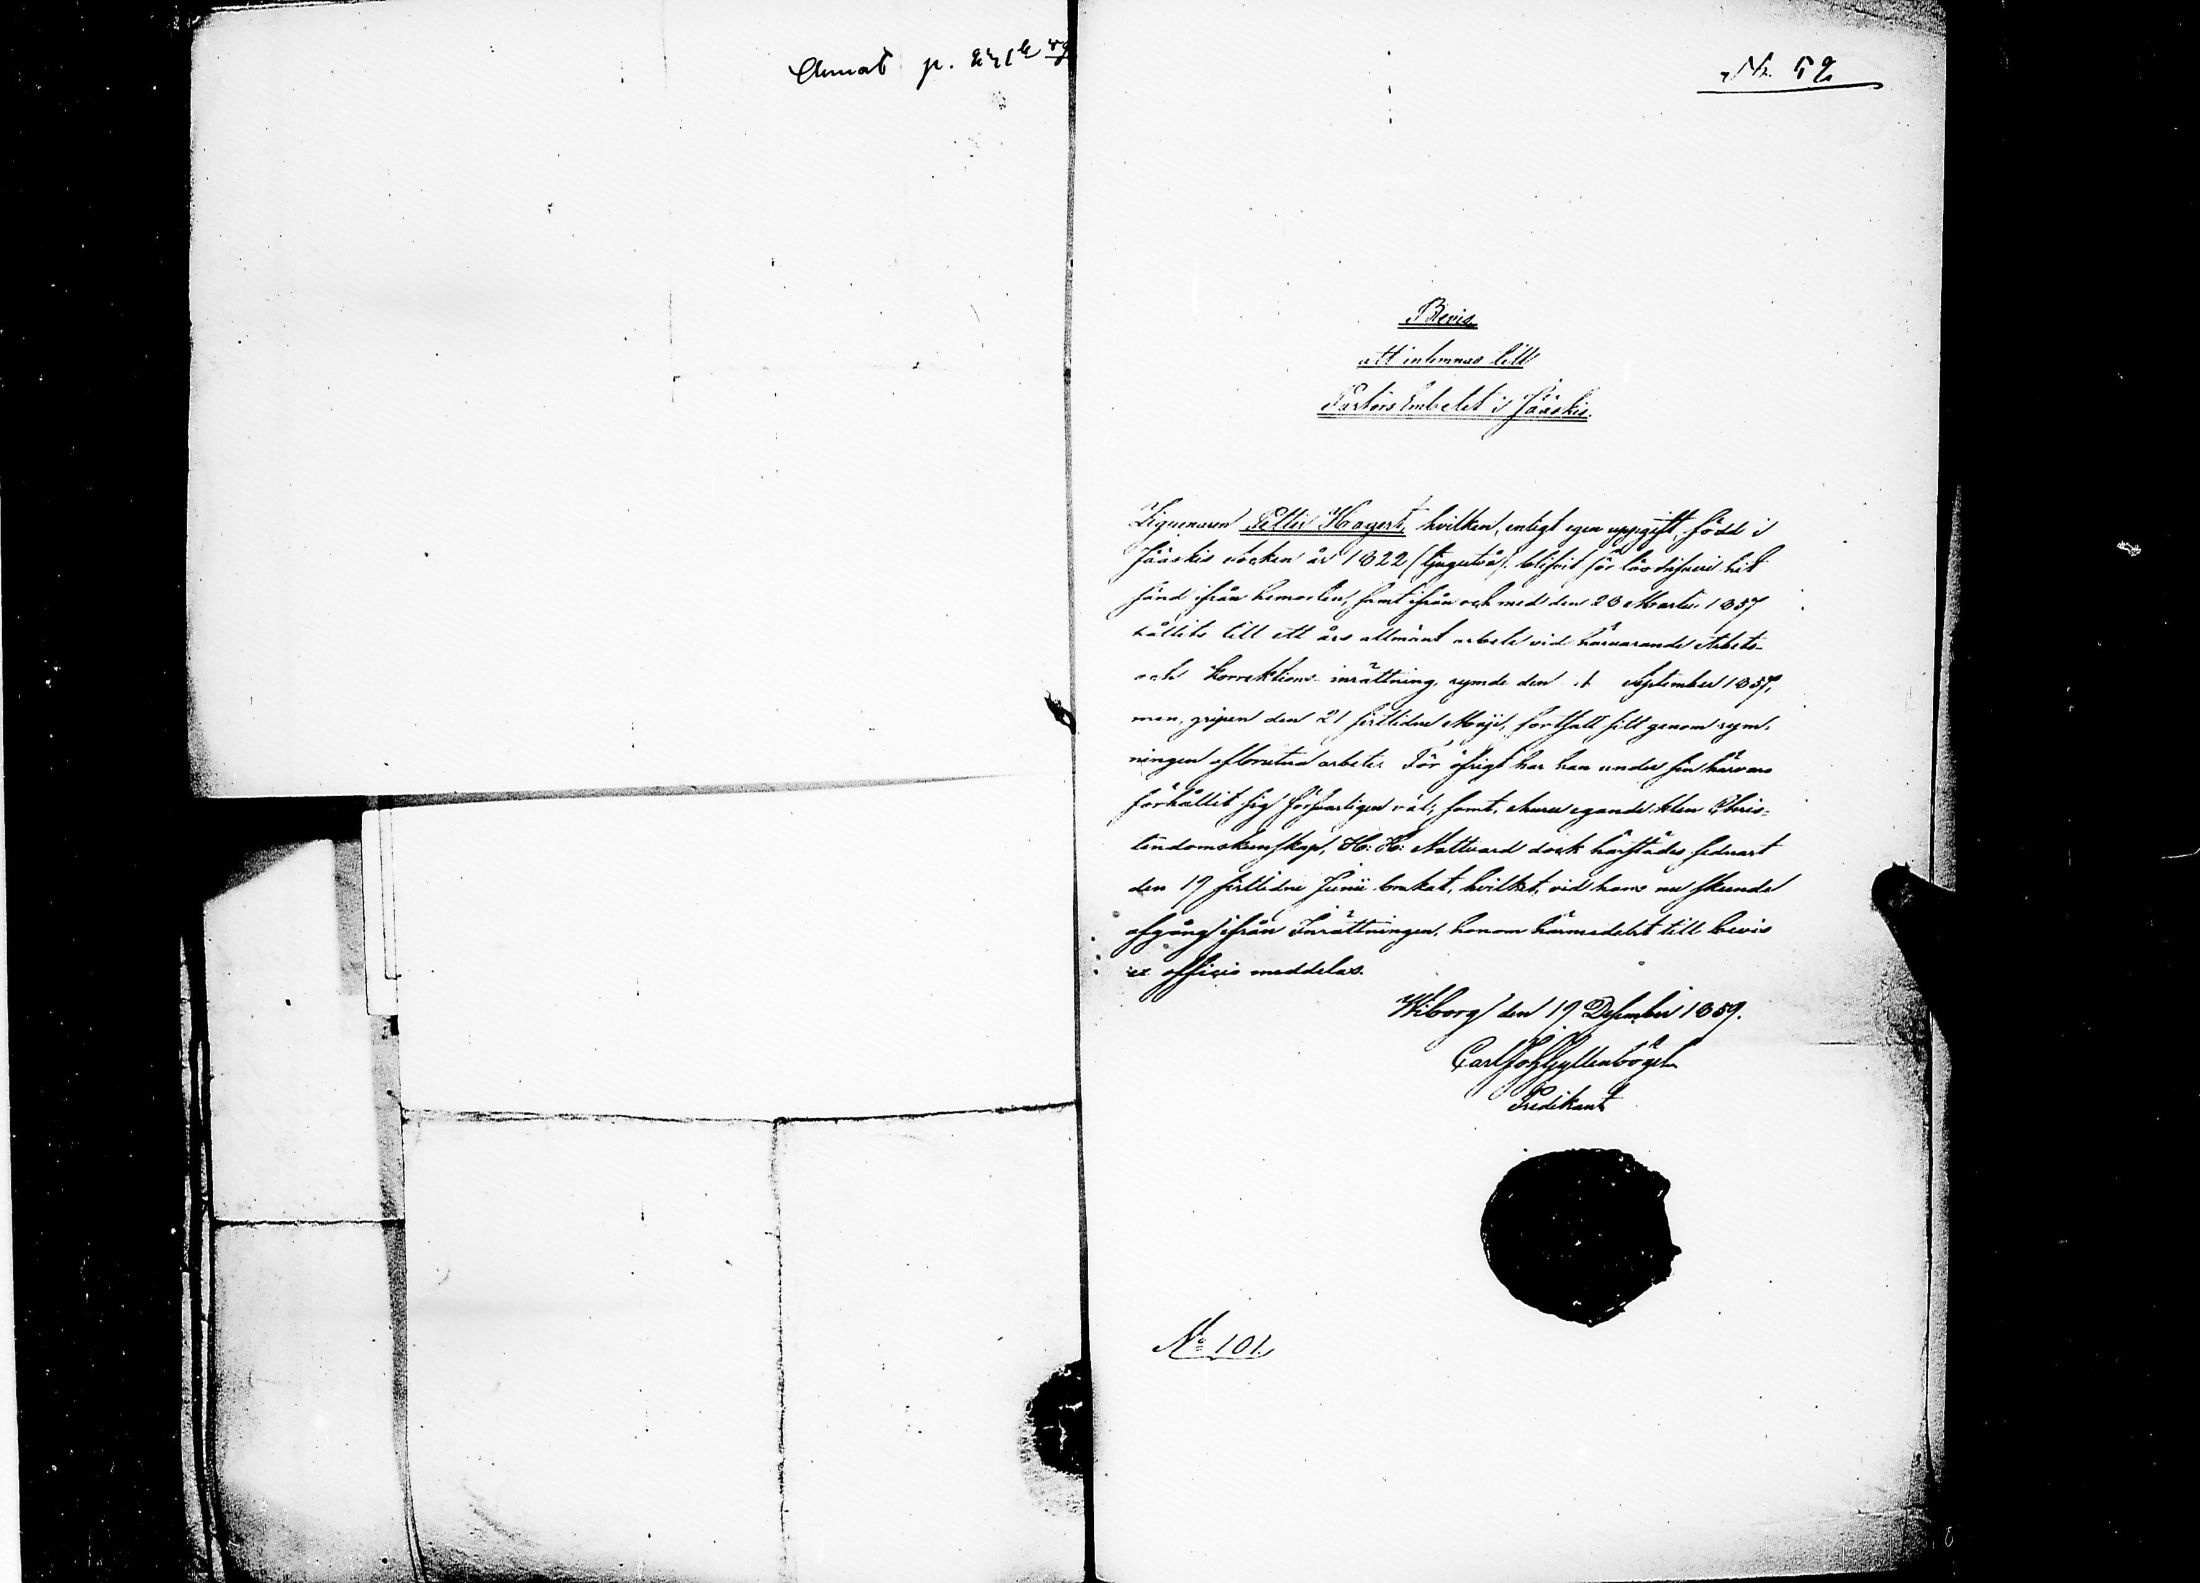 Nr. 52
Bevis
att inlemnas till
Pastors Embetet i Jääskis.
Zigenaren Petter Hagert, hvilken, enligt egen uppgift, född i
Jääskis socken år 1822 (tjugutvå), blifvit för lösdrifveri hit
sänd ifrån hemorten, samt ifrån och med den 23 Martii 1857
hållits till ett års allmänt arbete vid härvarande Arbets-
och Korrektions-inrättning, rymde den 1 September 1857,
men, gripen den 21 sistlidne Maji, fortsatt sitt genom rym-
ningen afbrutna arbete. För öfrigt har han under sin härvaro
förhållit sig försvarligen väl, samt, egande klen Chris-
tendomskunskap, H: H: Nattvard dock härstädes sednast
den 19 sistlidne Junii brukat, hvilket, vid hans nu skeende
afgång ifrån Inrättningen, honom härmedelst till bevis
ex officio meddelas.
Wiborg den 19 December 1859.
Carl Joh Gyllenbögel
Predikant
No 101.